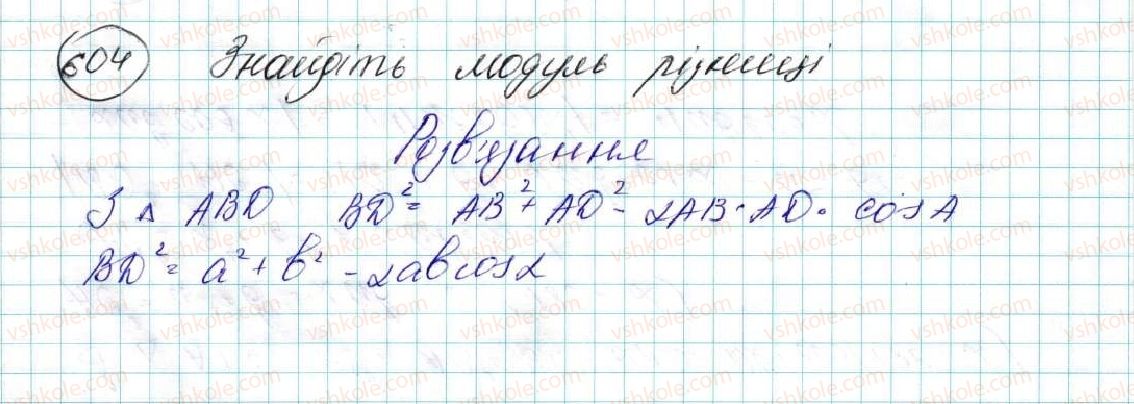 604 Знайдіть модуль різниці
Розв'язання
З △ ABD BD² = AB² + AD² - 2AB · AD · cos A
BD² = a² + b² - 2ab cos α